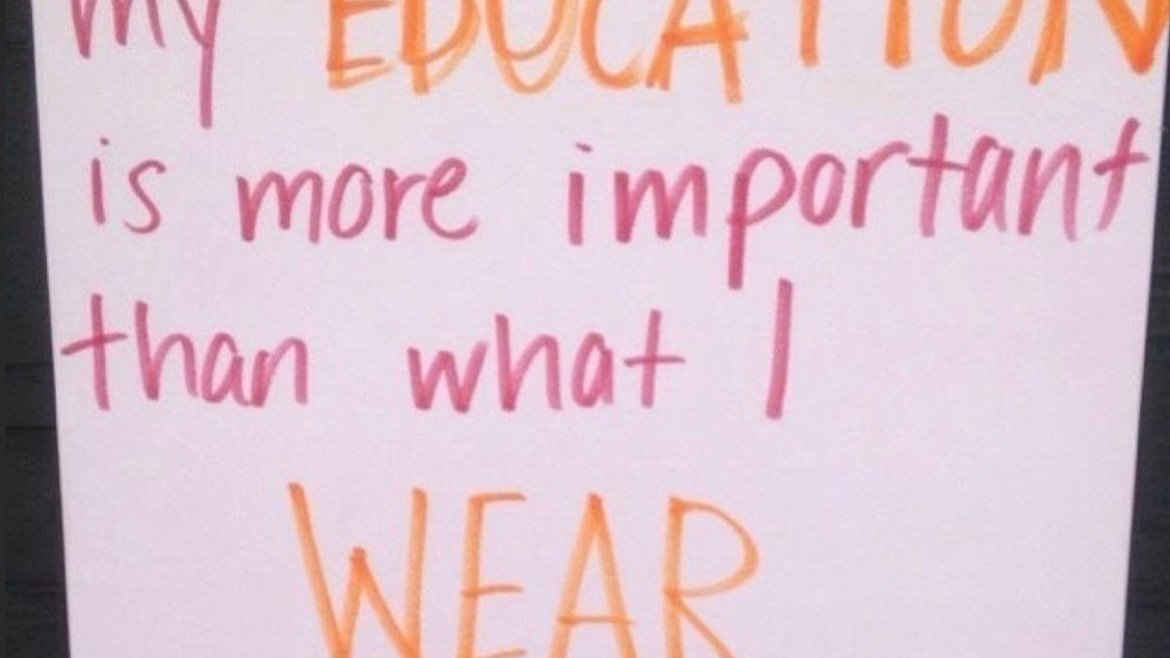 my EDUCATION
is more important
than what I
WEAR